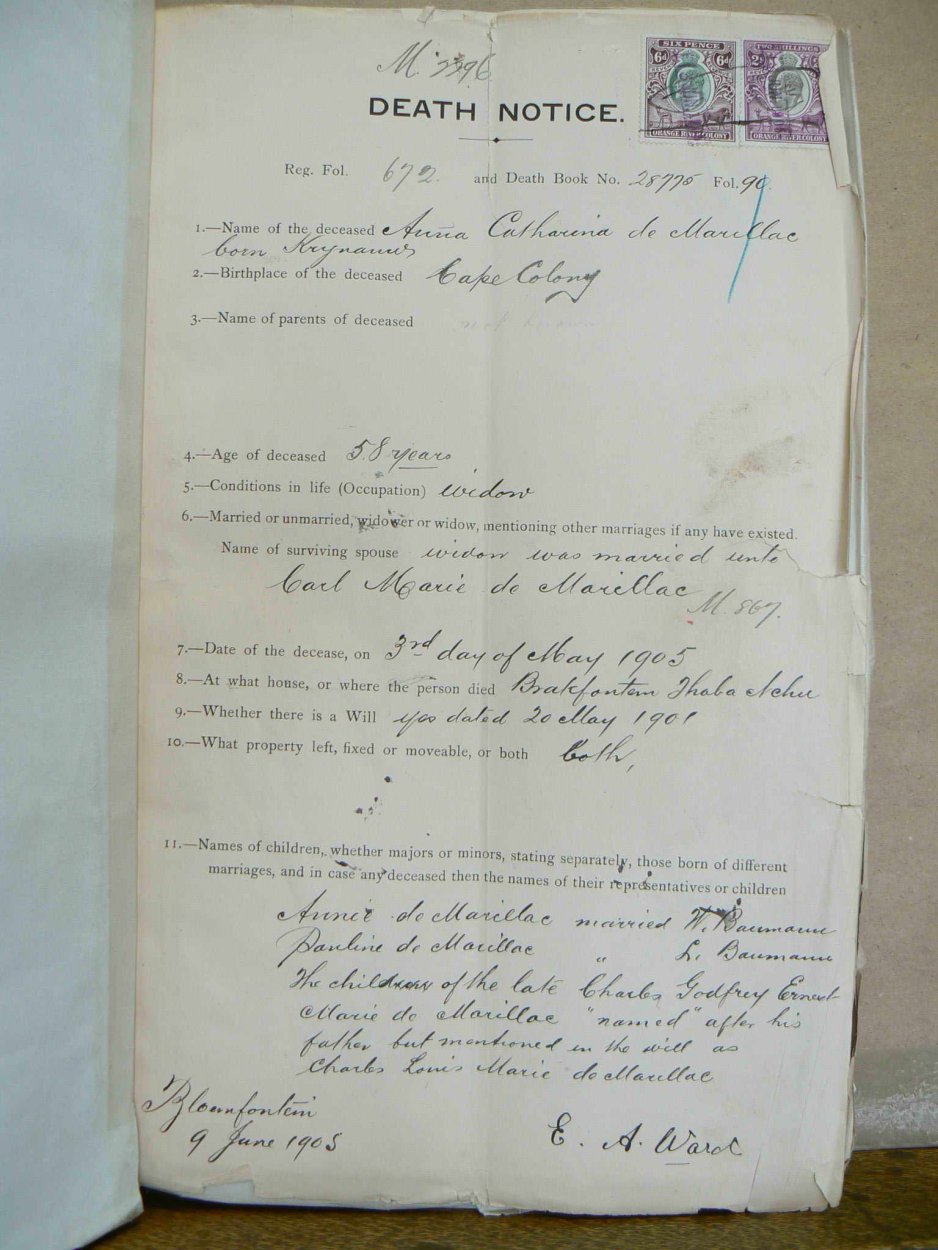 M. 2296
SIX PENCE
6d 6d
ORANGE RIVER COLONY
TWO SHILLINGS
2s
ORANGE RIVER COLONY
DEATH NOTICE.
Reg. Fol. 672. and Death Book No. 28775 Fol. 90.
1.—Name of the deceased Anna Catharina de Marillac
born
2.—Birthplace of the deceased Cape Colony
3.—Name of parents of deceased not known
4.—Age of deceased 58 years
5.—Conditions in life (Occupation) widow
6.—Married or unmarried, widower or widow, mentioning other marriages if any have existed.
Name of surviving spouse widow was married unto
Carl Marie de Marillac
M. 867.
7.—Date of the decease, on 3rd day of May 1905
8.—At what house, or where the person died Brakfontein Thaba Nchu
9.—Whether there is a Will yes dated 20 May 1901
10.—What property left, fixed or moveable, or both both,
11.—Names of children, whether majors or minors, stating separately, those born of different
marriages, and in case any deceased then the names of their representatives or children
Annie de Marillac married W. Baumann
Pauline de Marillac " L. Baumann
The children of the late Charles Godfrey Ernest
Marie de Marillac "named" after his
father but mentioned in the will as
Charles Louis Marie de Marillac
Bloemfontein
9 June 1905
E. A. Ward